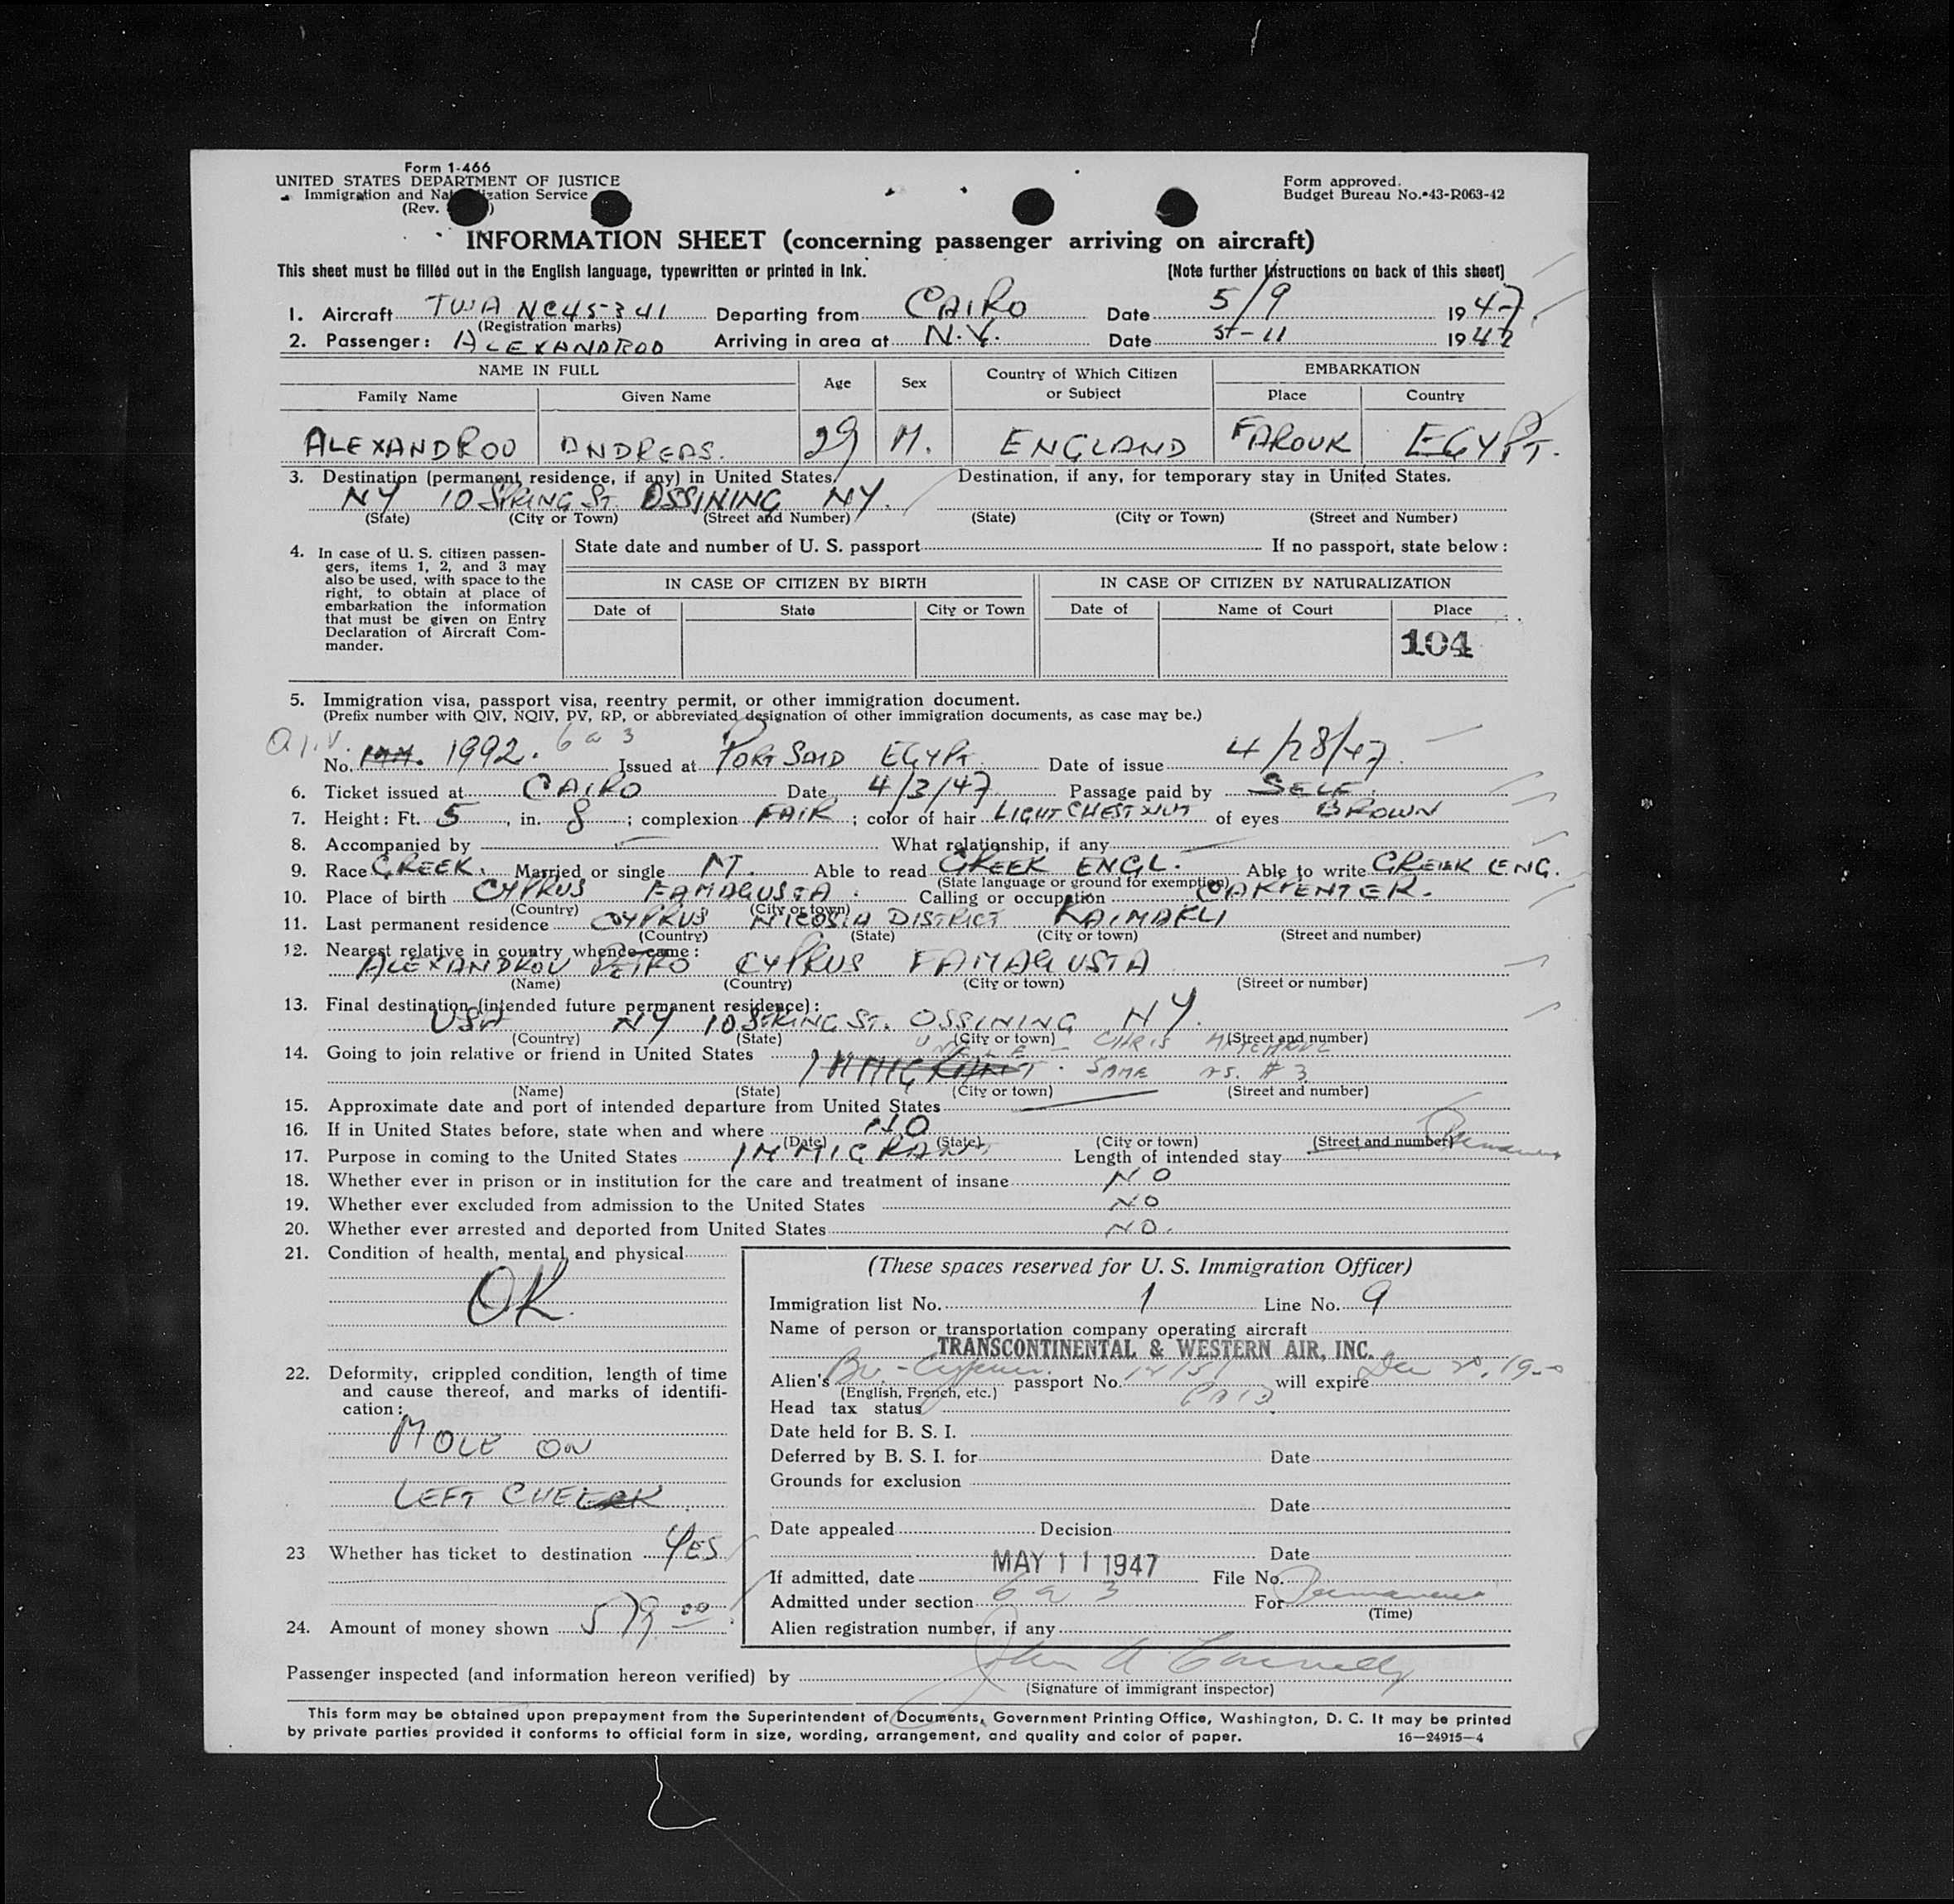 Form 1-466
UNITED STATES DEPARTMENT OF JUSTICE
Immigration and Naturalization Service
(Rev. )
Form approved.
Budget Bureau No. 43-R063-42
INFORMATION SHEET (concerning passenger arriving on aircraft)
This sheet must be filled out in the English language, typewritten or printed in Ink. [Note further instructions on back of this sheet]
1. Aircraft TWA NC45341 Departing from CAIRO Date 5/9 1947.
(Registration marks)
2. Passenger: ALEXANDROU Arriving in area at N.Y. Date 5-11 1947
NAME IN FULL Age Sex Country of Which Citizen or Subject EMBARKATION
Family Name Given Name Place Country
ALEXANDROU ANDREAS. 29 M. ENGLAND FAROUK EGYPT.
3. Destination (permanent residence, if any) in United States. Destination, if any, for temporary stay in United States.
NY 10 SPRING ST. OSSINING NY.
(State) (City or Town) (Street and Number) (State) (City or Town) (Street and Number)
4. In case of U. S. citizen passengers, items 1, 2, and 3 may also be used, with space to the right, to obtain at place of embarkation the information that must be given on Entry Declaration of Aircraft Commander.
State date and number of U. S. passport If no passport, state below:
IN CASE OF CITIZEN BY BIRTH IN CASE OF CITIZEN BY NATURALIZATION
Date of State City or Town Date of Name of Court Place
104
5. Immigration visa, passport visa, reentry permit, or other immigration document.
(Prefix number with QIV, NQIV, PV, RP, or abbreviated designation of other immigration documents, as case may be.)
Q.I.V. 6 a 3
No. 1992. Issued at PORT SAID EGYPT Date of issue 4/28/47.
6. Ticket issued at CAIRO Date 4/3/47 Passage paid by SELF.
7. Height: Ft. 5, in. 8; complexion FAIR; color of hair LIGHT CHESTNUT of eyes BROWN
8. Accompanied by What relationship, if any
9. Race GREEK. Married or single M. Able to read GREEK ENGL. Able to write GREEK ENG.
(State language or ground for exemption)
10. Place of birth CYPRUS FAMAGUSTA. Calling or occupation CARPENTER.
(Country) (City or town)
11. Last permanent residence CYPRUS NICOSIA DISTRICT KAIMAKLI
(Country) (State) (City or town) (Street and number)
12. Nearest relative in country whence came:
ALEXANDROU PETRO CYPRUS FAMAGUSTA
(Name) (Country) (City or town) (Street or number)
13. Final destination (intended future permanent residence):
USA NY 10 SPRING ST. OSSINING NY.
(Country) (State) (City or town) (Street and number)
14. Going to join relative or friend in United States UNCLE - CHRIS
IMMIGRANT. SAME AS. # 3
(Name) (State) (City or town) (Street and number)
15. Approximate date and port of intended departure from United States
16. If in United States before, state when and where NO
(Date) (State) (City or town) (Street and number)
17. Purpose in coming to the United States IMMIGRANT Length of intended stay Permanent
18. Whether ever in prison or in institution for the care and treatment of insane NO
19. Whether ever excluded from admission to the United States NO
20. Whether ever arrested and deported from United States NO.
21. Condition of health, mental and physical
OK.
22. Deformity, crippled condition, length of time and cause thereof, and marks of identification:
MOLE ON
LEFT CHEEK
23 Whether has ticket to destination YES
24. Amount of money shown 579.00
(These spaces reserved for U. S. Immigration Officer)
Immigration list No. 1 Line No. 9
Name of person or transportation company operating aircraft
TRANSCONTINENTAL & WESTERN AIR, INC.
Alien's Br. - Cyprus passport No. will expire Dec 20, 1950
(English, French, etc.)
Head tax status PAID
Date held for B. S. I.
Deferred by B. S. I. for Date
Grounds for exclusion
Date
Date appealed Decision
Date
If admitted, date MAY 11 1947 File No.
Admitted under section 6 a 3 For Permanent
(Time)
Alien registration number, if any
Passenger inspected (and information hereon verified) by John A Connelly
(Signature of immigrant inspector)
This form may be obtained upon prepayment from the Superintendent of Documents, Government Printing Office, Washington, D. C. It may be printed
by private parties provided it conforms to official form in size, wording, arrangement, and quality and color of paper. 16—24915-4